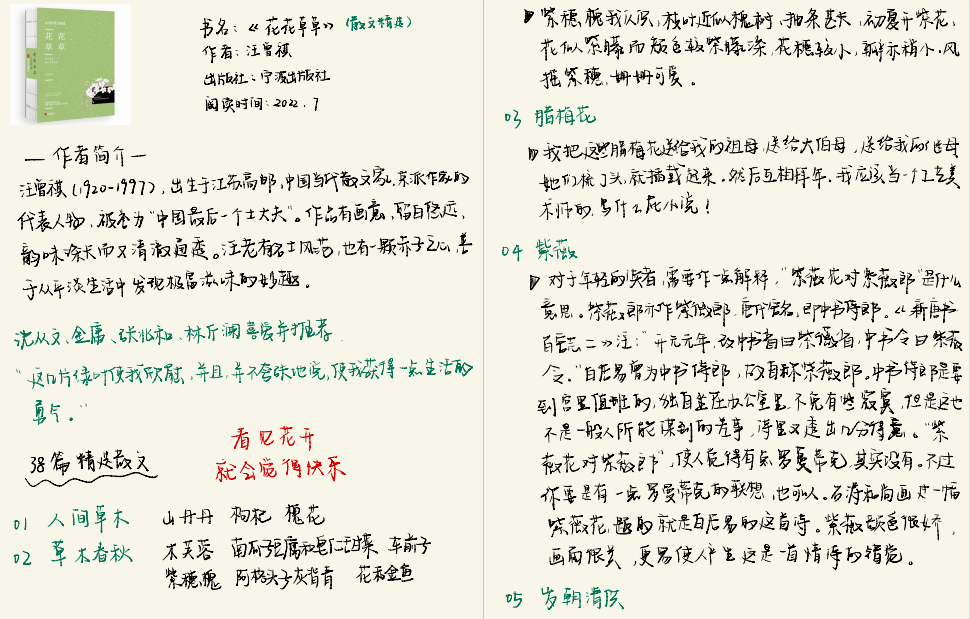 花花草草
书名：《花花草草》（散文精选）
作者：汪曾祺
出版社：宁波出版社
阅读时间：2022.7
— 作者简介 —
汪曾祺（1920-1997），出生于江苏高邮，中国当代散文家，京派作家的
代表人物，被誉为“中国最后一个士大夫”。作品有画意，
韵味悠长而又清澈通透。汪老有名士风范，也有一颗赤子之心，善
于从平淡生活中发现极富滋味的妙趣。
沈从文、金庸、张兆和、林斤澜喜爱并推荐
“这几片绿叶使我欣慰，并且，并不夸张地说，使我获得一点生活的
勇气。”
看见花开
就会觉得快乐
38篇精选散文
01 人间草木 山丹丹 枸杞 槐花
02 草木春秋 木芙蓉 南瓜子豆腐和皂仁甜菜 车前子
紫穗槐 阿格头子灰背青 花和金鱼
紫穗槐我认识，枝叶近似槐树，抽条甚长，初夏开紫花，
花似紫藤而颜色较紫藤深，花穗较小，瓣亦稍小。风
摇紫穗，姗姗可爱。
03 腊梅花
我把这些腊梅花送给我的祖母，送给大伯母，送给我的继母
她们梳了头，就插戴起来。然后互相拜年。我应该当一个工艺美
术师的，写什么屁小说！
04 紫薇
对于年轻的读者，需要作一点解释，“紫薇花对紫薇郎”是什么
意思。紫薇郎亦作紫微郎，唐代官名，即中书侍郎。《新唐书
百官志二》注：“开元元年，改中书省曰紫微省，中书令曰紫微
令。”白居易曾为中书侍郎，故自称紫薇郎。中书侍郎是要
到宫里值班的，独自坐在办公室里，不免有些寂寞，但是这也
不是一般人所能谋到的差事，诗里又透出几分得意。“紫
薇花对紫薇郎”，使人觉得有点罗曼蒂克，其实没有。不过
你要是有一点罗曼蒂克的联想，也可以。石涛和尚画过一幅
紫薇花，题的就是白居易的这首诗。紫薇颜色很娇，
画面很美，更易使人产生这是一首情诗的错觉。
05 岁朝清供